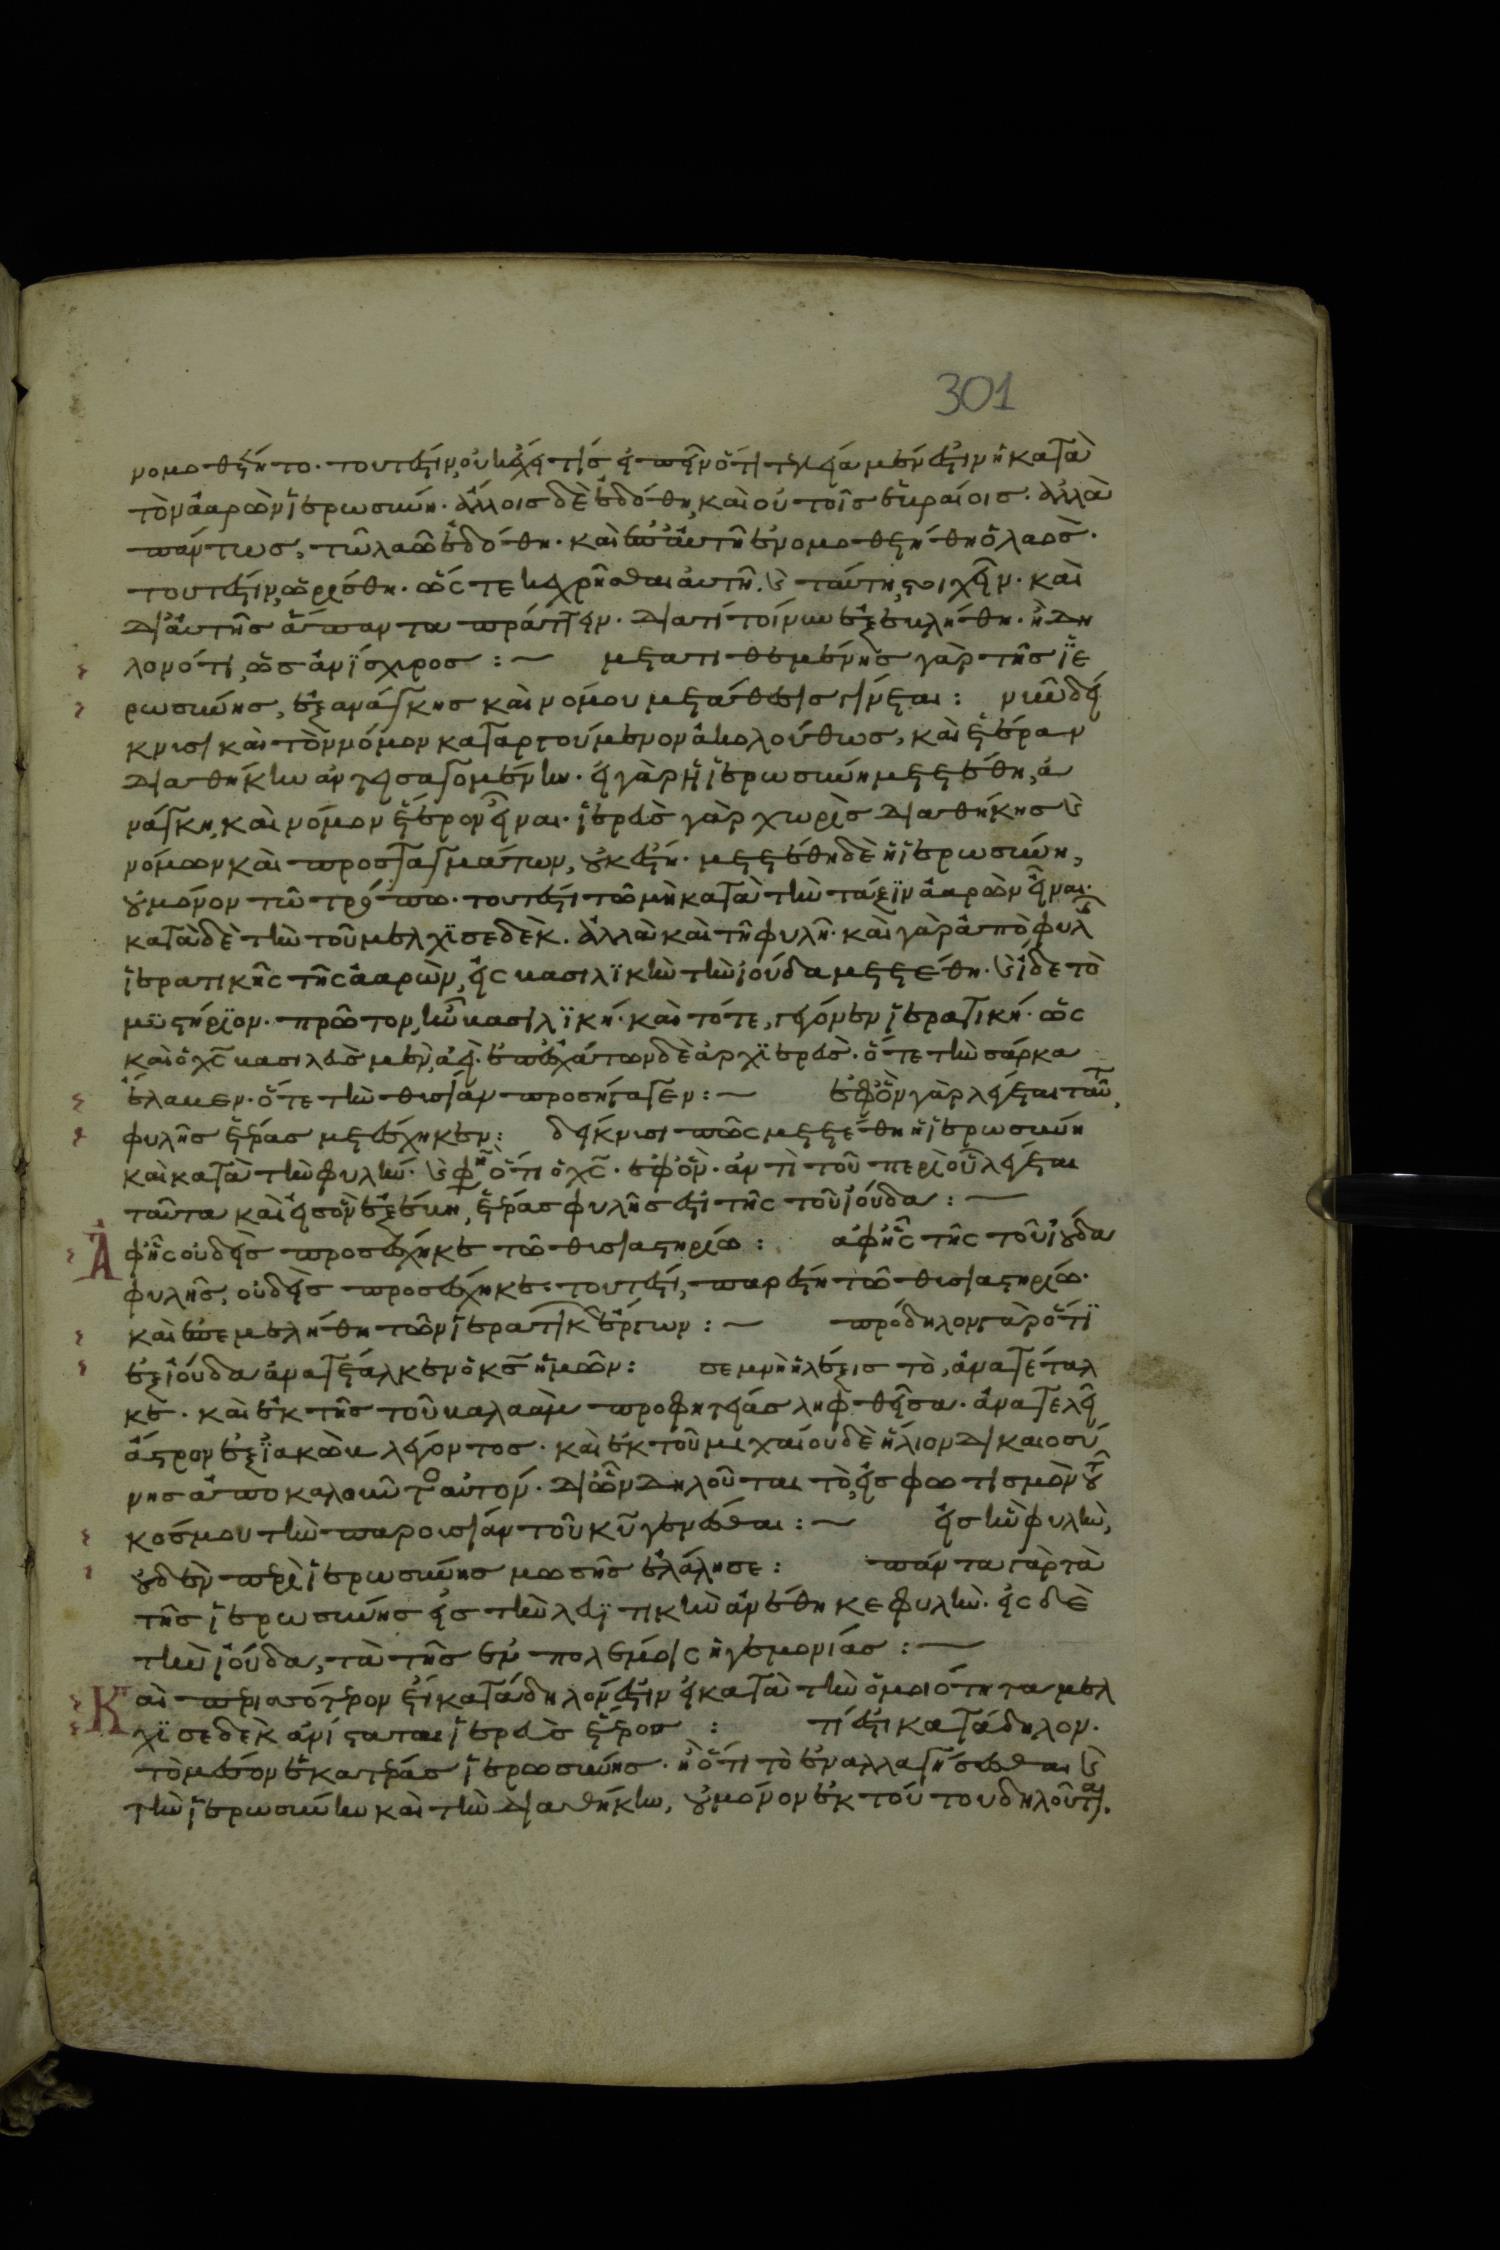 301
νομοθέτητο. τουτέστιν, οὐκ ἔχει τίς εἰπεῖν ὅτι τελεία μὲν ἐστιν ἡ κατὰ
τὸν ἀαρὼν ἱερωσύνη. ἄλλοις δὲ ἐδόθη, καὶ οὐ τοῖς ἑβραίοις. ἀλλὰ
πάντως, τῶ λαῶ ἐδόθη. καὶ ἐπ' αὐτῆ ἐνομοθετήθη ὁ λαός.
τουτέστιν, ὡρίσθη. ὥστε κεχρῆσθαι αὐτῆ. καὶ ταύτη στοιχεῖν. καὶ
δι' αὐτῆς ἅπαντα πράττειν. διατί τοίνυν ἐξεβλήθη. ἢ δη
λονότι, ὡς ἀνίσχυρος : ~ μετατιθεμένης γὰρ τῆς ἱε
ρωσύνης, ἐξ ἀνάγκης καὶ νόμου μετάθεσις γίνεται : νῦν δεί
κνυσι καὶ τὸν νόμον καταργούμενον ἀκολούθως, καὶ ἑτέραν
διαθήκην ἀντεισαγομένην. εἰ γὰρ ἡ ἱερωσύνη μετετέθη, ἀ
νάγκη, καὶ νόμον ἕτερον εἶναι. ἱερεὺς γὰρ χωρὶς διαθήκης καὶ
νόμων καὶ προσταγμάτων, οὐκ ἔστιν. μετετέθη δὲ ἡ ἱερωσύνη,
οὐ μόνον τῶ τρόπω. τουτέστι τῶ μὴ κατὰ τὴν τάξιν ἀαρὼν εἶναι.
κατὰ δὲ τὴν τοῦ μελχισεδέκ. ἀλλὰ καὶ τῆ φυλῆ. καὶ γὰρ ἀπὸ φυλῆς
ἱερατικῆς τῆς ἀαρών, εἰς βασιλικὴν τὴν ἰούδα μετετέθη. καὶ ἴδε τὸ
μυστήριον. πρῶτον, ἦν βασιλική. καὶ τότε, γέγονεν ἱερατική. ὡς
καὶ ὁ χς βασιλεὺς μὲν, ἀεί. ἐπ' ἐσχάτων δὲ ἀρχιερεύς. ὅτε τὴν σάρκα
ἔλαβεν. ὅτε τὴν θυσίαν προσήγαγεν : ~ ἐφ' ὃν γὰρ λέγεται ταῦτα,
φυλῆς ἑτέρας μετέσχηκεν : δείκνυσι πῶς μετετέθη ἡ ἱερωσύνη
καὶ κατὰ τὴν φυλήν. καὶ φησὶν ὅτι ὁ χς. ἐφ' ὅν. ἀντὶ τοῦ περὶ οὗ λέγεται
ταῦτα καὶ εἰς ὃν ἐξέβη, ἑτέρας φυλῆς ἐστι τῆς τοῦ ἰούδα : ~
Ἀφ' ἧς οὐδεὶς προσέσχηκε τῶ θυσιαστηρίω : ἀφ' ἧς τῆς τοῦ ἰούδα
φυλῆς, οὐδεὶς προσέσχηκε. τουτέστι, παρέστη τῶ θυσιαστηρίω.
καὶ ἐπεμελήθη τῶν ἱερατικῶν ἔργων : ~ πρόδηλον γὰρ ὅτι
ἐξ ἰούδα ἀνατέταλκεν ὁ κς ἡμῶν : σεμνὴ ἡ λέξις τὸ, ἀνατέταλ
κε. καὶ ἐκ τῆς τοῦ βαλαὰμ προφητείας ληφθεῖσα. ἀνατελεῖ
ἄστρον ἐξ ἰακὼβ λέγοντος. καὶ ἐκ τοῦ μιχαίου δὲ ἥλιον δικαιοσύ
νης ἀποκαλοῦντος αὐτόν. δι' ὧν δηλοῦται τὸ, εἰς φωτισμὸν τοῦ
κόσμου τὴν παρουσίαν τοῦ κυ γενέσθαι : ~ εἰς ἣν φυλὴν,
οὐδὲν περὶ ἱερωσύνης μωσῆς ἐλάλησε : πάντα γὰρ τὰ
τῆς ἱερωσύνης εἰς τὴν λευϊτικὴν ἀνέθηκε φυλήν. εἰς δὲ
τὴν ἰούδα, τὰ τῆς ἐν πολέμοις ἡγεμονίας : ~
Καὶ περισσότερον ἔτι κατάδηλόν ἐστιν εἰ κατὰ τὴν ὁμοιότητα μελ
χισεδὲκ ἀνίσταται ἱερεὺς ἕτερος : τί ἐστι κατάδηλον.
τὸ μέσον ἑκατέρας ἱερωσύνης. ἢ ὅτι τὸ ἐναλλαγήσεσθαι καὶ
τὴν ἱερωσύνην καὶ τὴν διαθήκην, οὐ μόνον ἐκ τούτου δηλοῦται.